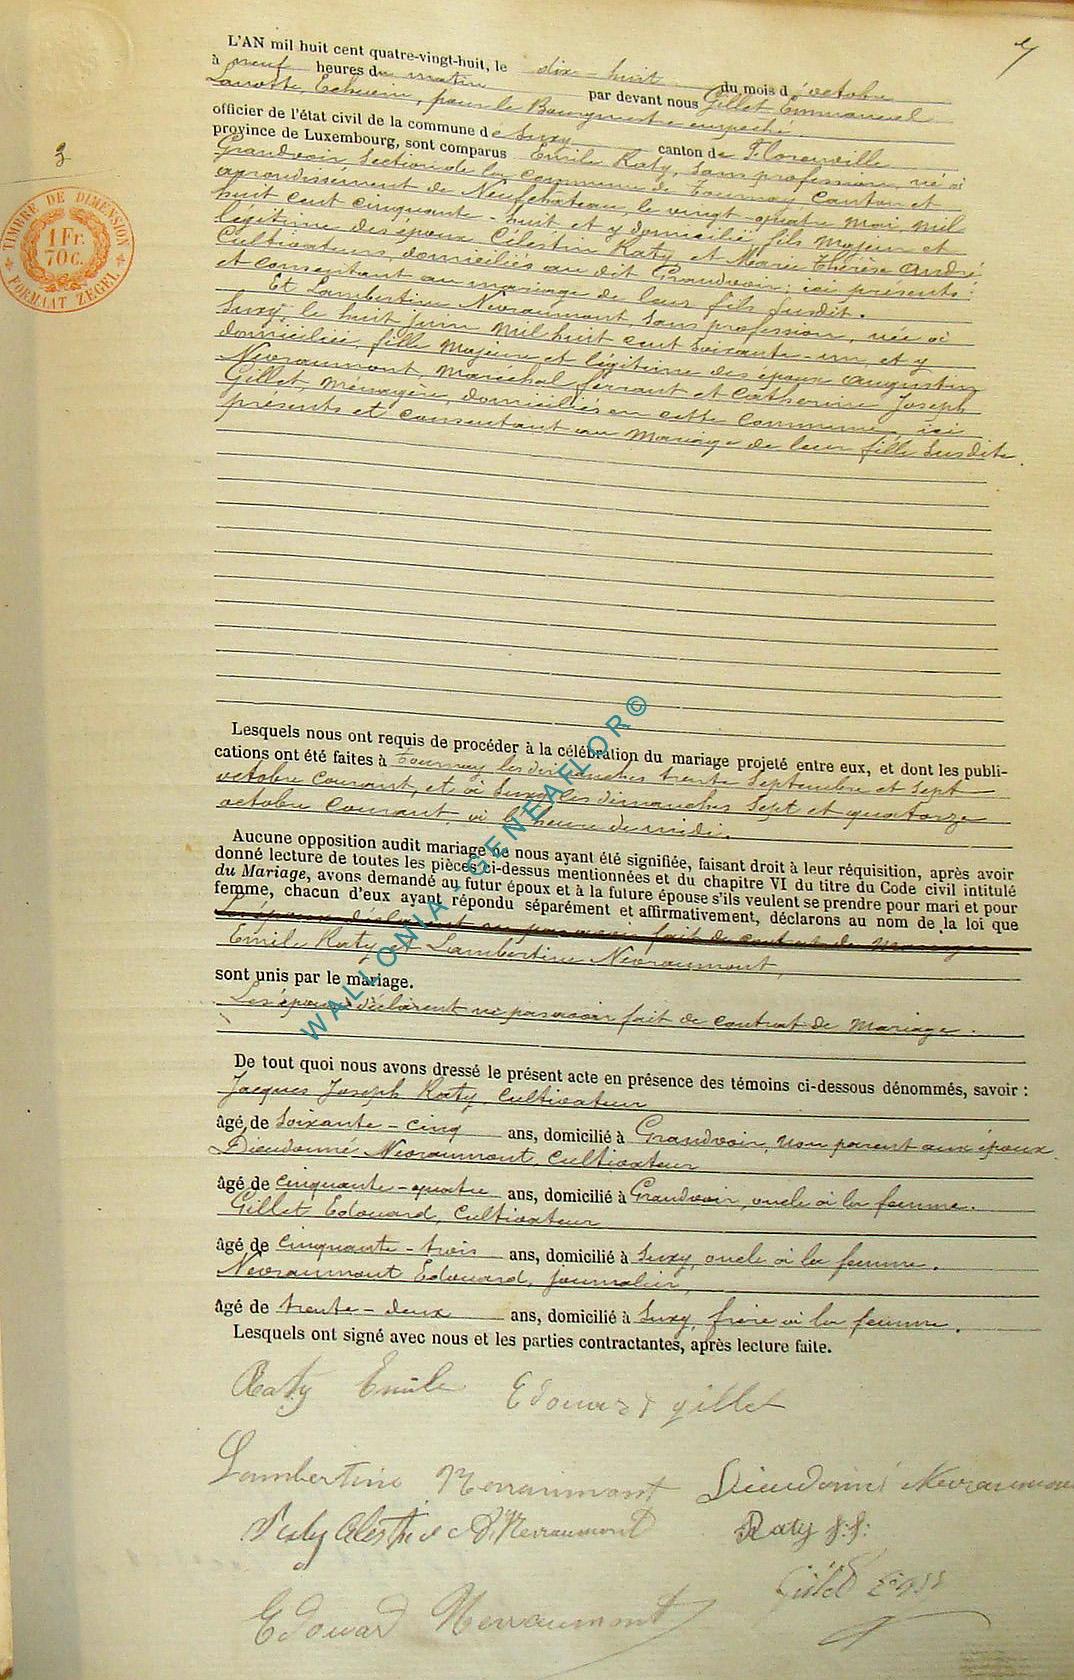 3
TIMBRE DE DIMENSION
1 Fr.
70c.
FORMAAT ZEGEL
L'AN mil huit cent quatre-vingt-huit, le dix-huit du mois d'octobre
à neuf heures du matin par devant nous Gillet Emmanuel
Échevin, pour le Bourgmestre empêché
officier de l'état civil de la commune de Suxy canton de Florenville
province de Luxembourg, sont comparus Emile Raty, sans profession, né à
Grandvoir section de la commune de Tournay Canton et
arrondissement de Neufchâteau, le vingt-quatre mai mil
huit cent cinquante-huit et y domicilié, fils majeur et
légitime des époux Célestin Raty et Marie Thérèse André
Cultivateurs, domiciliés au dit Grandvoir; ici présents
et consentant au mariage de leur fils susdit.
Et Lambertine Nevraumont, sans profession, née à
Suxy, le huit juin mil huit cent soixante-un, et y
domiciliée, fille majeure et légitime des époux Augustin
Nevraumont, maréchal ferrant et Catherine Joseph
Gillet, ménagère, domiciliés en cette commune, ici
présents et consentant au mariage de leur fille susdite.
Lesquels nous ont requis de procéder à la célébration du mariage projeté entre eux, et dont les publi-
cations ont été faites à Tournay les dimanches trente septembre et sept
octobre courant, et à Suxy les dimanches sept et quatorze
octobre courant, à l'heure de midi.
Aucune opposition audit mariage ne nous ayant été signifiée, faisant droit à leur réquisition, après avoir
donné lecture de toutes les pièces ci-dessus mentionnées et du chapitre VI du titre du Code civil intitulé
du Mariage, avons demandé au futur époux et à la future épouse s'ils veulent se prendre pour mari et pour
femme, chacun d'eux ayant répondu séparément et affirmativement, déclarons au nom de la loi que
Les époux déclarent ne pas avoir fait de contrat de mariage
Emile Raty et Lambertine Nevraumont,
sont unis par le mariage.
Les époux déclarent ne pas avoir fait de contrat de mariage.
De tout quoi nous avons dressé le présent acte en présence des témoins ci-dessous dénommés, savoir :
Jacques Joseph Raty, cultivateur
âgé de soixante-cinq ans, domicilié à Grandvoir, non parent aux époux.
Dieudonné Nevraumont, cultivateur
âgé de cinquante-quatre ans, domicilié à Grandvoir, oncle à la femme.
Gillet Edouard, cultivateur
âgé de cinquante-trois ans, domicilié à Suxy, oncle à la femme.
Nevraumont Edouard, journalier,
âgé de trente-deux ans, domicilié à Suxy, frère à la femme.
Lesquels ont signé avec nous et les parties contractantes, après lecture faite.
Raty Emile Edouard gillet
Lambertine Nevraumont Dieudonné Nevraumont
Raty Célestin A. Nevraumont Raty J.J.
Gillet
Edouard Nevraumont
WALLONIA-GENEAFLOR©